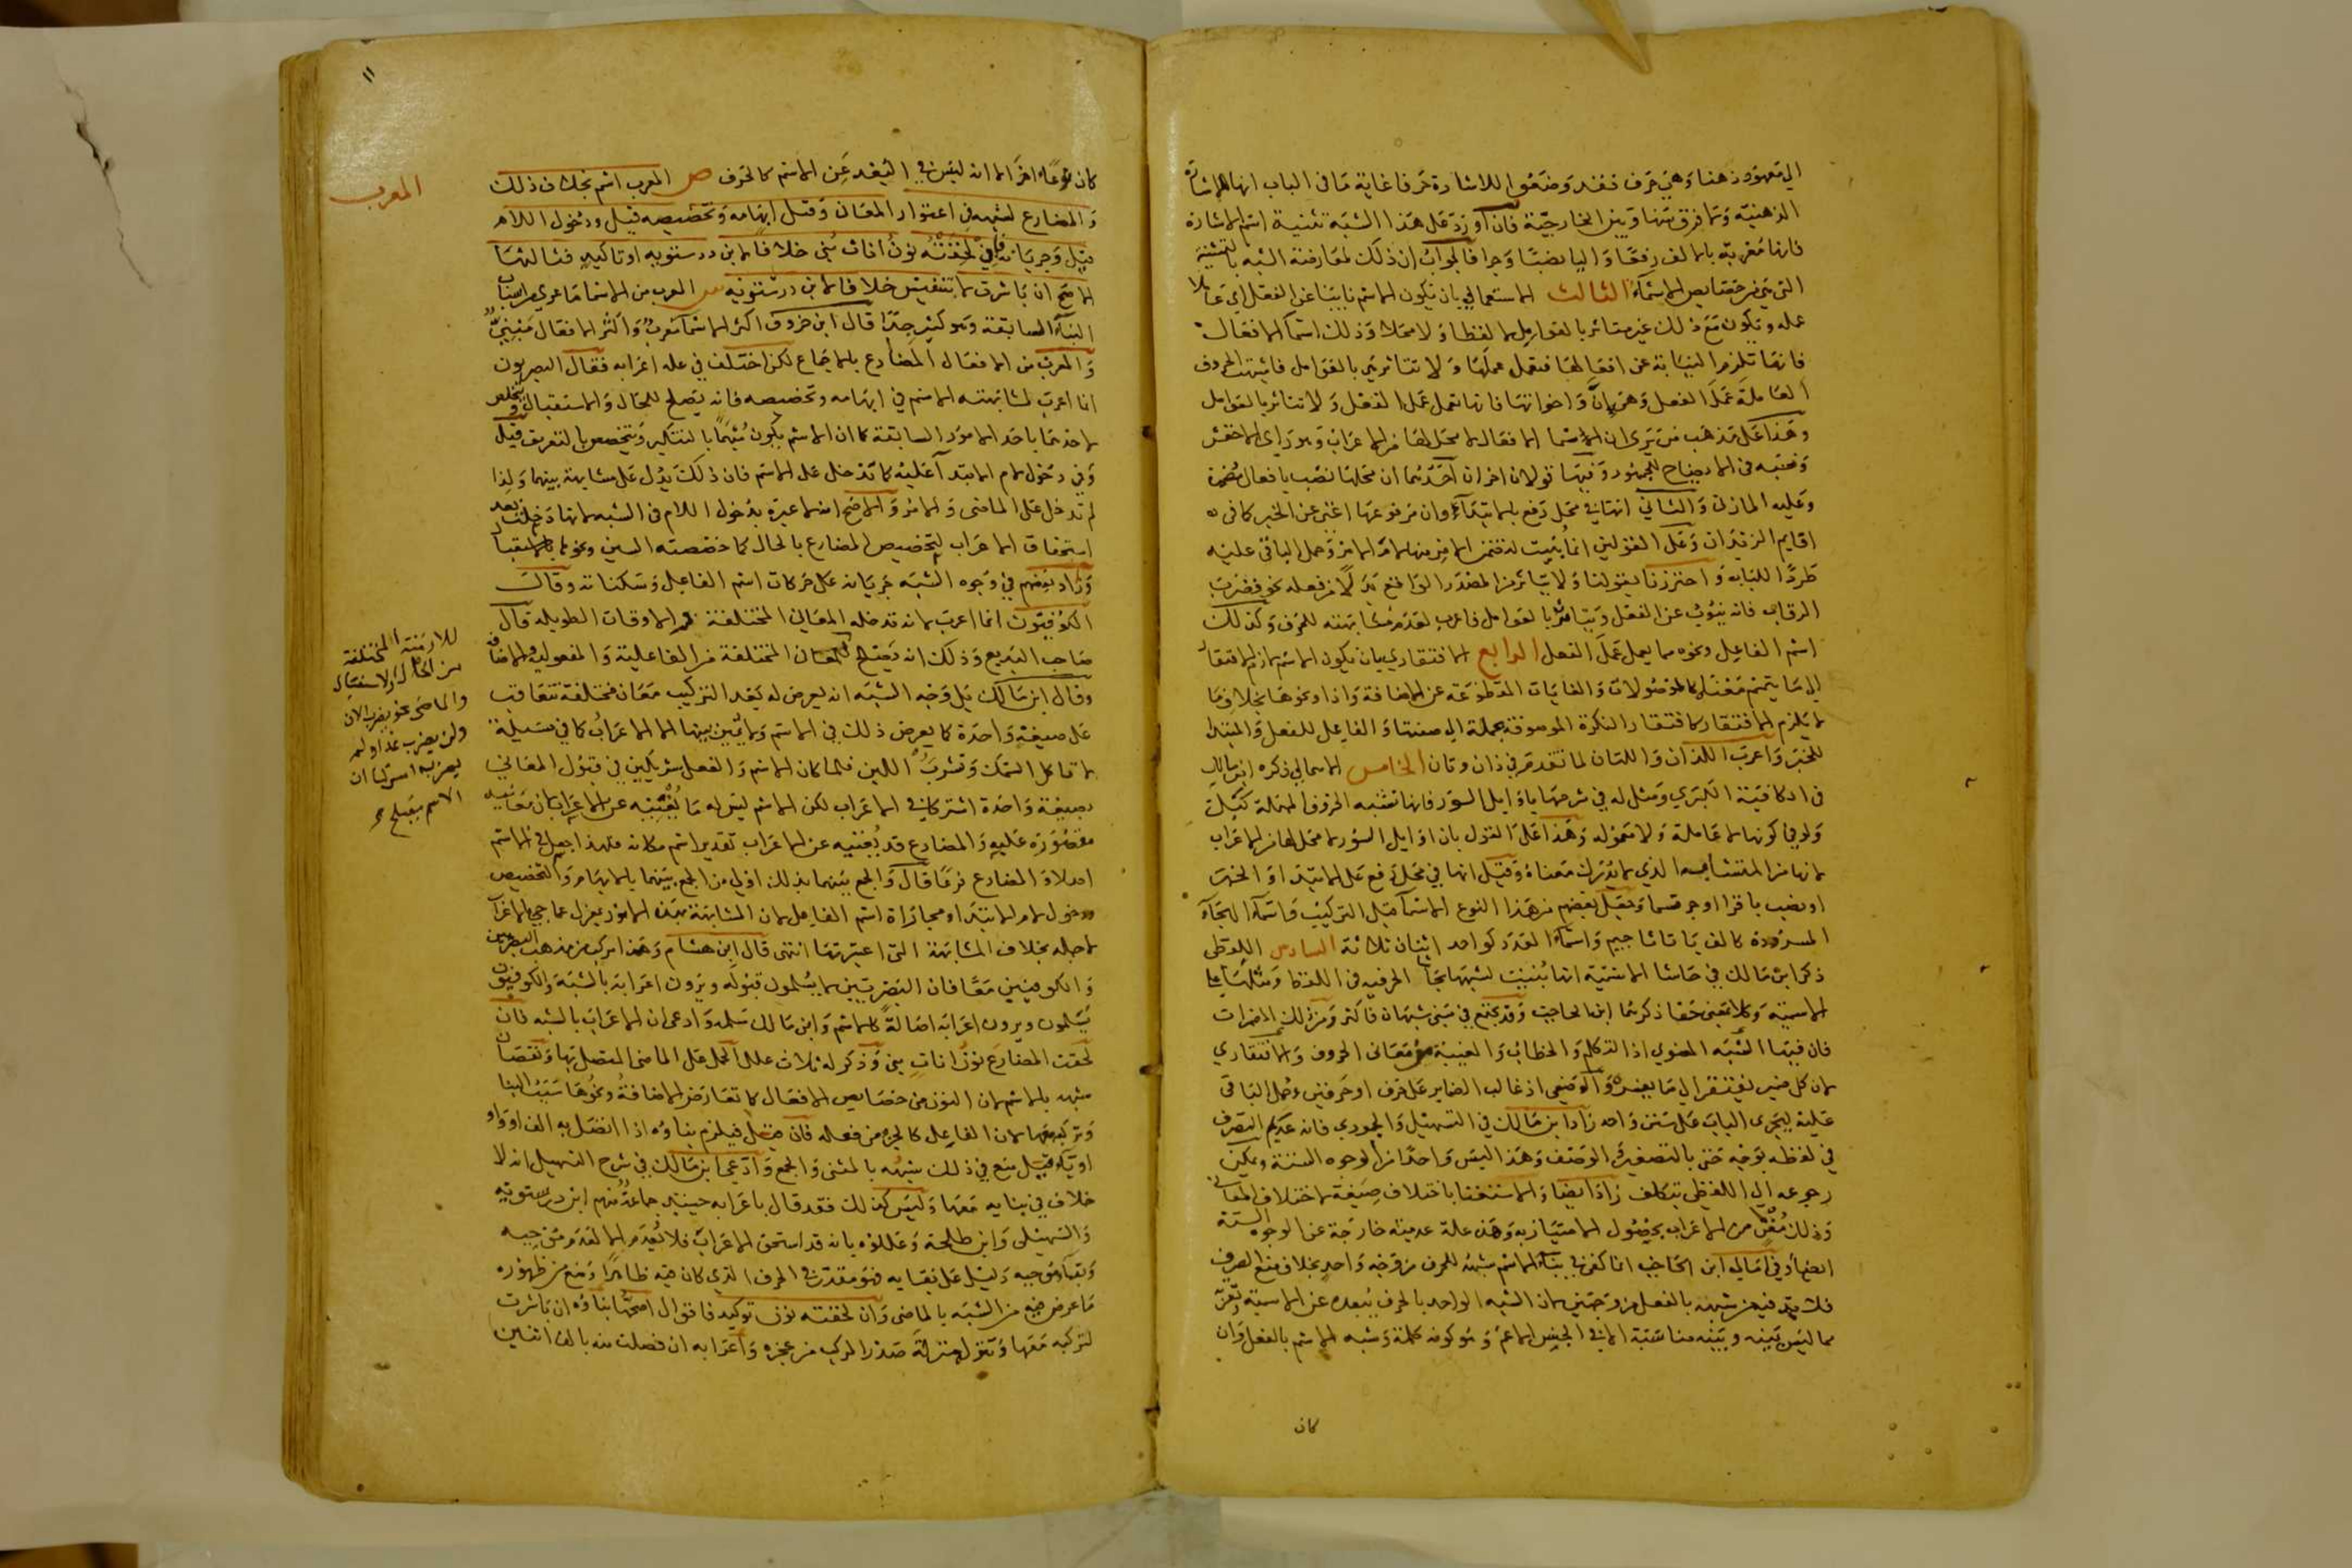 الى معهود ذهنا وهي حرف فقد وضعوا للاشارة حرفا غاية ما في الباب انها للاشارة
الذهنية وما فرق بينها وبين الخارجية فان اورد على هذا الشبه تثنية اسم الاشارة
فانها معربة بالالف رفعا واليا نصبا وجرا فالجواب ان ذلك لمعارضة الشبه بالتثنية
التي هي من خصايص الاسماء الثالث الاستعمالي بان يكون الاسم نايبا عن الفعل اي عاملا
عمله ويكون مع ذلك غير متاثر بالعوامل لا لفظا ولا محلا وذلك اسما الافعال
فانها تلزم النيابة عن افعالها فتعمل عملها ولا تتاثر هي بالعوامل فاشبهت الحروف
العاملة عمل الفعل وهي ان واخواتها فانها تعمل عمل الفعل ولا تتاثر بالعوامل
وهذا على مذهب من يرى ان اسما الافعال لا محل لها من الاعراب وهو راي الاخفش
ونسبه في الايضاح للجمهور وفيها قولان اخران احدهما ان محلها نصب بافعال مضمرة
وعليه المازني والثاني انها في محل رفع بالابتداء وان مرفوعها اغنى عن الخبر كما في
اقايم الزيدان وعلى القولين انما بنيت
طردا للباب واحترزنا بقولنا ولا يتاثر من المصدر الواقع بدلا من فعله نحو فضرب
الرقاب فانه ينوب عن الفعل ويتاثر بالعوامل فاعرب لعدم مشابهته للحرف وكذلك
اسم الفاعل ونحوه مما يعمل عمل الفعل الرابع الافتقاري بان يكون الاسم لازم الافتقار
الى ما يتمم معناه كالموصولات والغايات المقطوعة عن الاضافة واذا ونحوها بخلاف ما
لا يلزم الافتقار كافتقار النكرة الموصوفة بجملة الى صفتها والفاعل للفعل والمبتدا
للخبر واعرب اللذان واللتان لما تقدم في ذان وتان الخامس الاهمالي ذكره ابن مالك
في الكافية الكبرى ومثل له في شرحها باوايل السور فانها تشبه الحروف المهملة كبل
ولو في كونها لا عاملة ولا معمولة وهذا على القول بان اوايل السور لا محل لها من الاعراب
لانها من المتشابه الذي لا يدرك معناه وقيل انها في محل رفع على الابتدا او الخبر
او نصب باقرا او جر قسما وجعل بعضهم من هذا النوع الاسما قبل التركيب واسماء الهجاء
المسرودة كالف با تا ثا جيم واسماء العدد كواحد اثنان ثلاثة السادس اللفظي
ذكر ابن مالك في حاشا الاسمية انها بنيت لشبهها بحاشا الحرفية في اللفظ ومثلها على
الاسمية وكلا بمعنى حقا ذكرهما ابن الحاجب وقد يجتمع في مبني شبهان فاكثر ومن ذلك المضمرات
فان فيها الشبه المعنوي اذ التكلم والخطاب والغيبة من معاني الحروف والافتقاري
لان كل ضمير يفتقر الى ما يفسره والوضعي اذ غالب الضماير على حرف او حرفين وحمل الباقي
عليه ليجري الباب على سنن واحد زاد ابن مالك في التسهيل والجمودي فانه عديم التصرف
في لفظه بوجه حتى بالتصغير والوصف وهذا ليس واحدا من الوجوه الستة ويمكن
رجوعه الى اللفظي بتكلف زاد ايضا والاستغنا باختلاف صيغه لاختلاف المعاني
وذلك مغن عن الاعراب بحصول الامتياز به وهذه علة عدمية خارجة عن الوجوه الستة
ايضا وفي امالي ابن الحاجب انما كفى في بناء الاسم شبهه للحرف من وجه واحد بخلاف منع الصرف
فلا بد فيه من شبهه بالفعل من وجهين لان الشبه الواحد بالحرف يبعده عن الاسمية ويقربه
مما ليس بينه وبينه مناسبة الا في الجنس الاعم وهو كونه كلمة وشبه الاسم بالفعل وان
كان
١١
كان نوعا اخر الا انه ليس في البعد عن الاسم كالحرف ص المعرب اسم بخلاف ذلك
المعرب
والمضارع لشبهه في اعتوار المعان وقيل ابهامه وتخصيصه قيل ودخول اللام
قيل وجريانه فان لحقته نون اناث بني خلافا لابن درستويه او تاكيد فثالثها
الاصح ان باشرت لا بتنفيس خلافا لابن درستويه ش المعرب من الاسما ما عري من اسباب
البناء السابقة وهو كثير جدا قال ابن خروف اكثر الاسما معرب واكثر الافعال مبني
والمعرب من الافعال المضارع بالاجماع لكن اختلف في علة اعرابه فقال البصريون
انما اعرب لمشابهته الاسم في ابهامه وتخصيصه فانه يصلح للحال والاستقبال ويتخلص
لاحدهما باحد الامور السابقة كما ان الاسم يكون مبهما بالتنكير ويتخصص بالتعريف قيل
وفي دخول لام الابتدا عليه كما تدخل على الاسم فان ذلك يدل على مشابهة بينهما ولذا
لم تدخل على الماضي والامر والاصح انه لا عبرة بدخول اللام في الشبه لانها دخلت بعد
استحقاق الاعراب لتخصيص المضارع بالحال كما خصصته السين ونحوها بالاستقبال
وزاد بعضهم في وجوه الشبه جريانه على حركات اسم الفاعل وسكناته وقالت
الكوفيون انما اعرب لانه تدخله المعاني المختلفة والاوقات الطويلة قال
صاحب البديع وذلك انه يصلح للازمنة المختلفة
للازمنة المختلفة
من الحال والاستقبال
والماضي نحو يضرب الان
ولن يضرب غدا ولم
يضرب امس كما ان
الاسم يصلح
للمعان المختلفة من الفاعلية والمفعولية والاضافة
وقال ابن مالك بل وجه الشبه انه يعرض له بعد التركيب معان مختلفة تتعاقب
على صيغة واحدة كما يعرض ذلك في الاسم ولا يميز بينها الا الاعراب كما في مسئلة
لا تاكل السمك وتشرب اللبن فلما كان الاسم والفعل شريكين في قبول المعاني
بصيغة واحدة اشتركا في الاعراب لكن الاسم ليس له ما يغنيه عن الاعراب لان معانيه
مقصورة عليه والمضارع قد يغنيه عن الاعراب تقدير اسم مكانه فلهذا جعل في الاسم
اصلا والمضارع فرعا قال والجمع بينهما بذلك اولى من الجمع بينهما بالابهام والتخصيص
ودخول لام الابتدا ومجاراة اسم الفاعل لان المشابهة بهذه الامور بمعزل عما جيء بالاعراب
لاجله بخلاف المشابهة التي اعتبرتها انتهى قال ابن هشام وهذا مركب من مذهب البصريين
والكوفيين معا فان البصريين لا يسلمون قبوله ويرون اعرابه بالشبه والكوفيون
يسلمون ويرون اعرابه اصالة كالاسم وابن مالك سلمه وادعى ان الاعراب بالشبه فان
لحقت المضارع نون اناث بني وذكر له ثلاث علل الحمل على الماضي المتصل بها ونقصان
شبهه بالاسم لان النون من خصايص الافعال كما تعارض الاضافة ونحوها سبب البنا
وتركبه معها لان الفاعل كالجزء من فعله فان قيل فيلزم بناوه اذا اتصل به الف او واو
او ياء قيل منع في ذلك شبهه بالمثنى والجمع وادعى ابن مالك في شرح التسهيل انه لا
خلاف في بنايه معها وليس كذلك فقد قال باعرابه حينيذ جماعة منهم ابن درستويه
والسهيلي وابن طلحة وعللوه بانه قد استحق الاعراب فلا يعدم الا لعدم موجبه
وبقاء موجبه دليل على بقايه فهو مقدر في الحرف الذي كان فيه ظاهرا ومنع من ظهوره
ما عرض فيه من الشبه بالماضي وان لحقته نون توكيد فاقوال اصحها بناوه ان باشرت
لتركبه معها وتنزله منزلة صدر المركب من عجزه واعرابه ان فصلت منه بالف اثنين